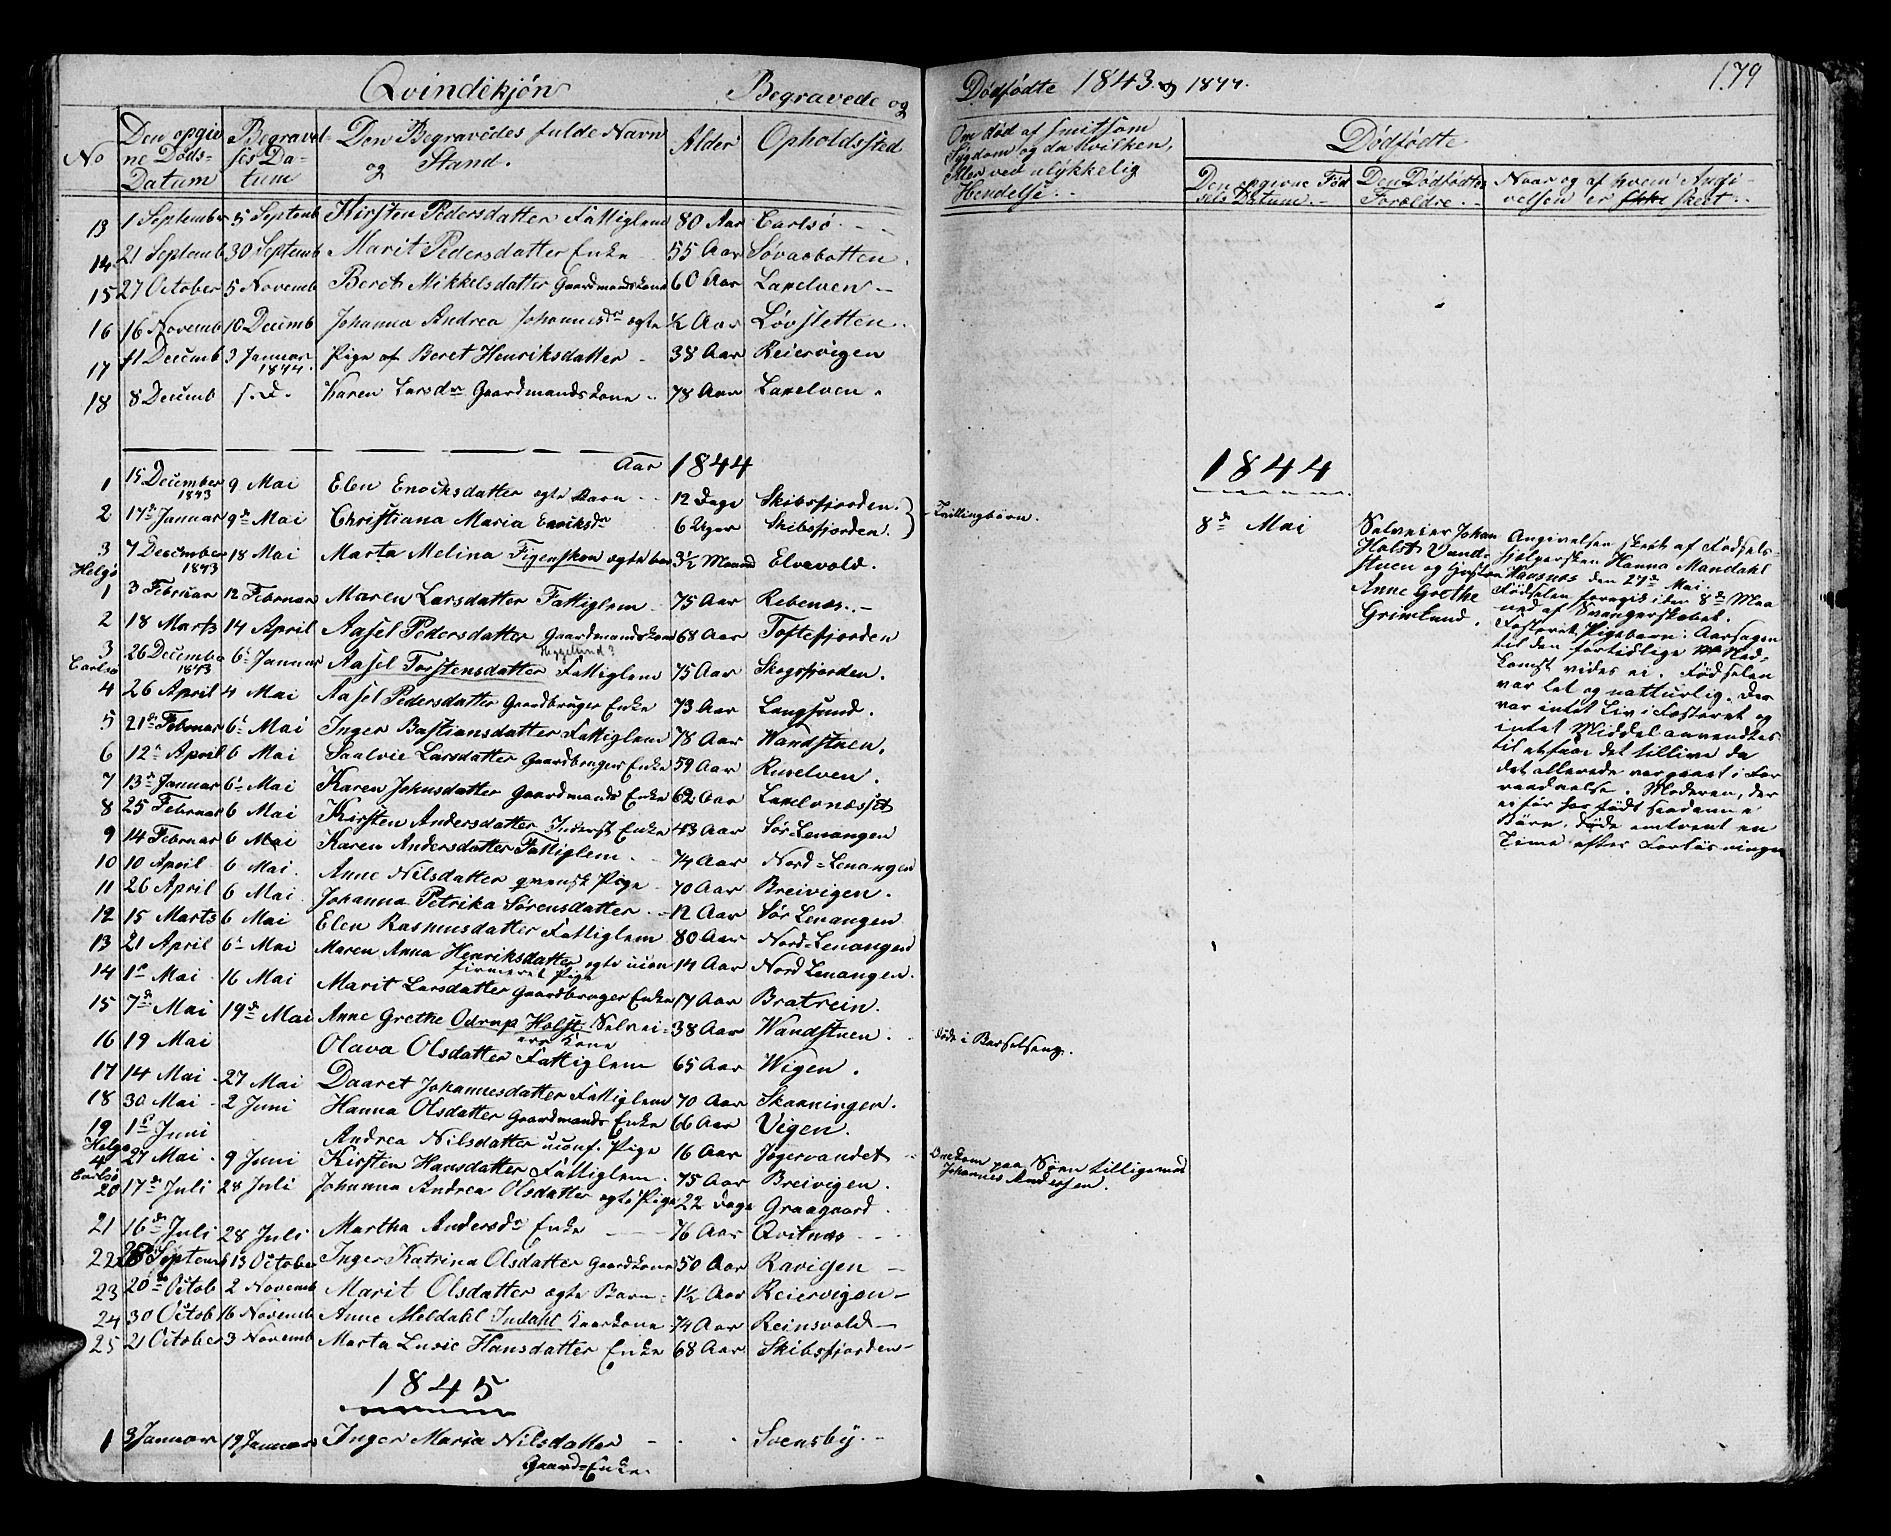 Qvindekjøn Begravede og
Dødfødte 1843 og 1844. 179
No
Den opgivne Døds-Datum
Begravelses Datum
Den Begravedes fulde Navn og Stand.
Alder
Opholdssted
Om død af smitsom Sygdom og da hvilken, eller ved ulykkelig Hendelse.
Dødfødte
Den opgivne Fødsels Datum.
Den Dødfødtes Foreldre.
Naar og af hvem Angivelsen er skeet.
13 1 September 5 Septemb Kirsten Pedersdatter Fattiglem 80 Aar Carlsø
14 21 Septemb 30 Septemb Marit Pedersdatter Enke 55 Aar Søvasbotten
15 27 October 5 Novemb Beret Mikkelsdatter Gaardmandskone 60 Aar Laxelven
16 16 Novemb 10 Decemb Johanna Andrea Johannesdr ægte ½ Aar Løvsletten
17 11 Decemb 3 Januar 1844. Pige af Beret Henriksdatter 38 Aar Reiervigen
18 8 Decemb s.d. Karen Larsdr Gaardmandskone 78 Aar Laxelven
Aar 1844
1 15 December 1843 9 Mai Elen Enoksdatter ægte Barn 12 Dage Skibsfjorden.
2 17de Januar 9de Mai Christiana Maria Enoksdr 6 Uger Skibsfjorden. Tvillingbørn.
3 7 December 1843 18 Mai Marta Melina Figenskou ægte barn 3½ Maaned Elvevold.
Helgø
1 3 Februar 12 Februar Maren Larsdatter Fattiglem 75 Aar Rebenæs.
2 18 Marts 14 April Aasel Pedersdatter Gaardmandskone 68 Aar Toftefjorden
Heggelund?
3 26 December 1843 6 Januar Aasel Torstensdatter Fattiglem 75 Aar Skogsfjorden.
Carlsø
4 26 April 4 Mai Aasel Pedersdatter Gaardbruger Enke 73 Aar Langsund.
5 21de Februar 6 Mai Inger Bastiansdatter Fattiglem 78 Aar Vandstuen.
6 12 April 6 Mai Saalvie Larsdatter Gaardbruger Enke 59 Aar Ruselven.
7 13 Januar 6 Mai Karen Johnsdatter Gaardmands Enke 62 Aar Laxelvnæsset
8 25 Februar 6 Mai Kirsten Andersdatter Inderst Enke 43 Aar Sør-Lenangen
9 14 Februar 6 Mai Karen Andersdatter Fattiglem. 74 Aar Nord=Lenangen
10 10 April 6 Mai. Anne Nilsdatter qvensk Pige 70 Aar Breivigen.
11 26 April 6 Mai Johanna Petrika Sørensdatter 12 Aar Sør Lenangen
12 15 Marts 6 Mai Elen Rasmusdatter Fattiglem 80 Aar Nord-Lenangen
13 21 April 6 Mai Maren Anna Henriksdatter ægte ucon 14 Aar Nord Lenangen.
firmeret Pige
14 1 Mai 16 Mai Marit Larsdatter Gaardbruger Enke 17 Aar Bratrein.
15 7de Mai 19de Mai Anne Grethe Odrup Holst Selvei= 38 Aar Vandstuen. Døde i Barselseng.
ers Kone
16 19 Mai Olava Olsdatter Fattiglem 65 Aar Vigen.
17 14 Mai 27 Mai Daaret Johannesdatter Fattiglem 70 Aar Skaaningen.
18 30 Mai 2 Juni Hanna Olsdatter Gaardmands Enke 66 Aar Vigen.
19 1 Juni Andrea Nilsdatter uconf. Pige 16 Aar Jøgervandet Druknom paa Søen tilligemed Johannes Andersen.
Helgø
4 27 Mai 9 Juni Kirsten Hansdatter Fattiglem. 75 Aar Breivigen.
Carlsø
20 17de Juli 28 Juli Johanna Andrea Olsdatter ægte Pige 22 Dage Graagaard.
21 16de Juli 28 Juli Martha Andersdr Enke 76 Aar Qvitnæs
22 28 Septemb 13 October Inger Katrina Olsdatter Gaardkone 50 Aar Ravigen
23 20de Octob 2 Novemb Marit Olsdatter ægte Barn 1½ Aar Reiervigen
24 30 Octob 16 Novemb Anne Meldahl Indahl Kaarkone 74 Aar Reinsvold
25 21 October 3 Novemb Marta Lusie Hansdatter Enke 68 Aar Skibsfjorden
1845
1 3 Januar 19 Januar Inger Maria Nilsdatter Svensby
Gaard=Enke.
1844
8de Mai
Selveier Johan
Holst Vand-
stuen og Hustru
Anne Grethe
Grimlund.
Angivelsen skeet af Fødsels-
hjelpersken Hanna Mandahl
Hansnæs den 27de Mai.
Fødselen foregik i den 8de Maa
ned af Svangerskabet.
Fosteret Pigebarn: Aarsagen
til den fortidlige Ned-
komst vides ei. Fødselen
var let og naturlig. Der
var intet Liv i Fosteret og
intet Middel anvendtes
til at faae det tillive da
det allerede var gaaet i For
raadnelse. Moderen, der
ei før har født saadanne
Børn. Døde omtrent en
Time efter Forløsningen